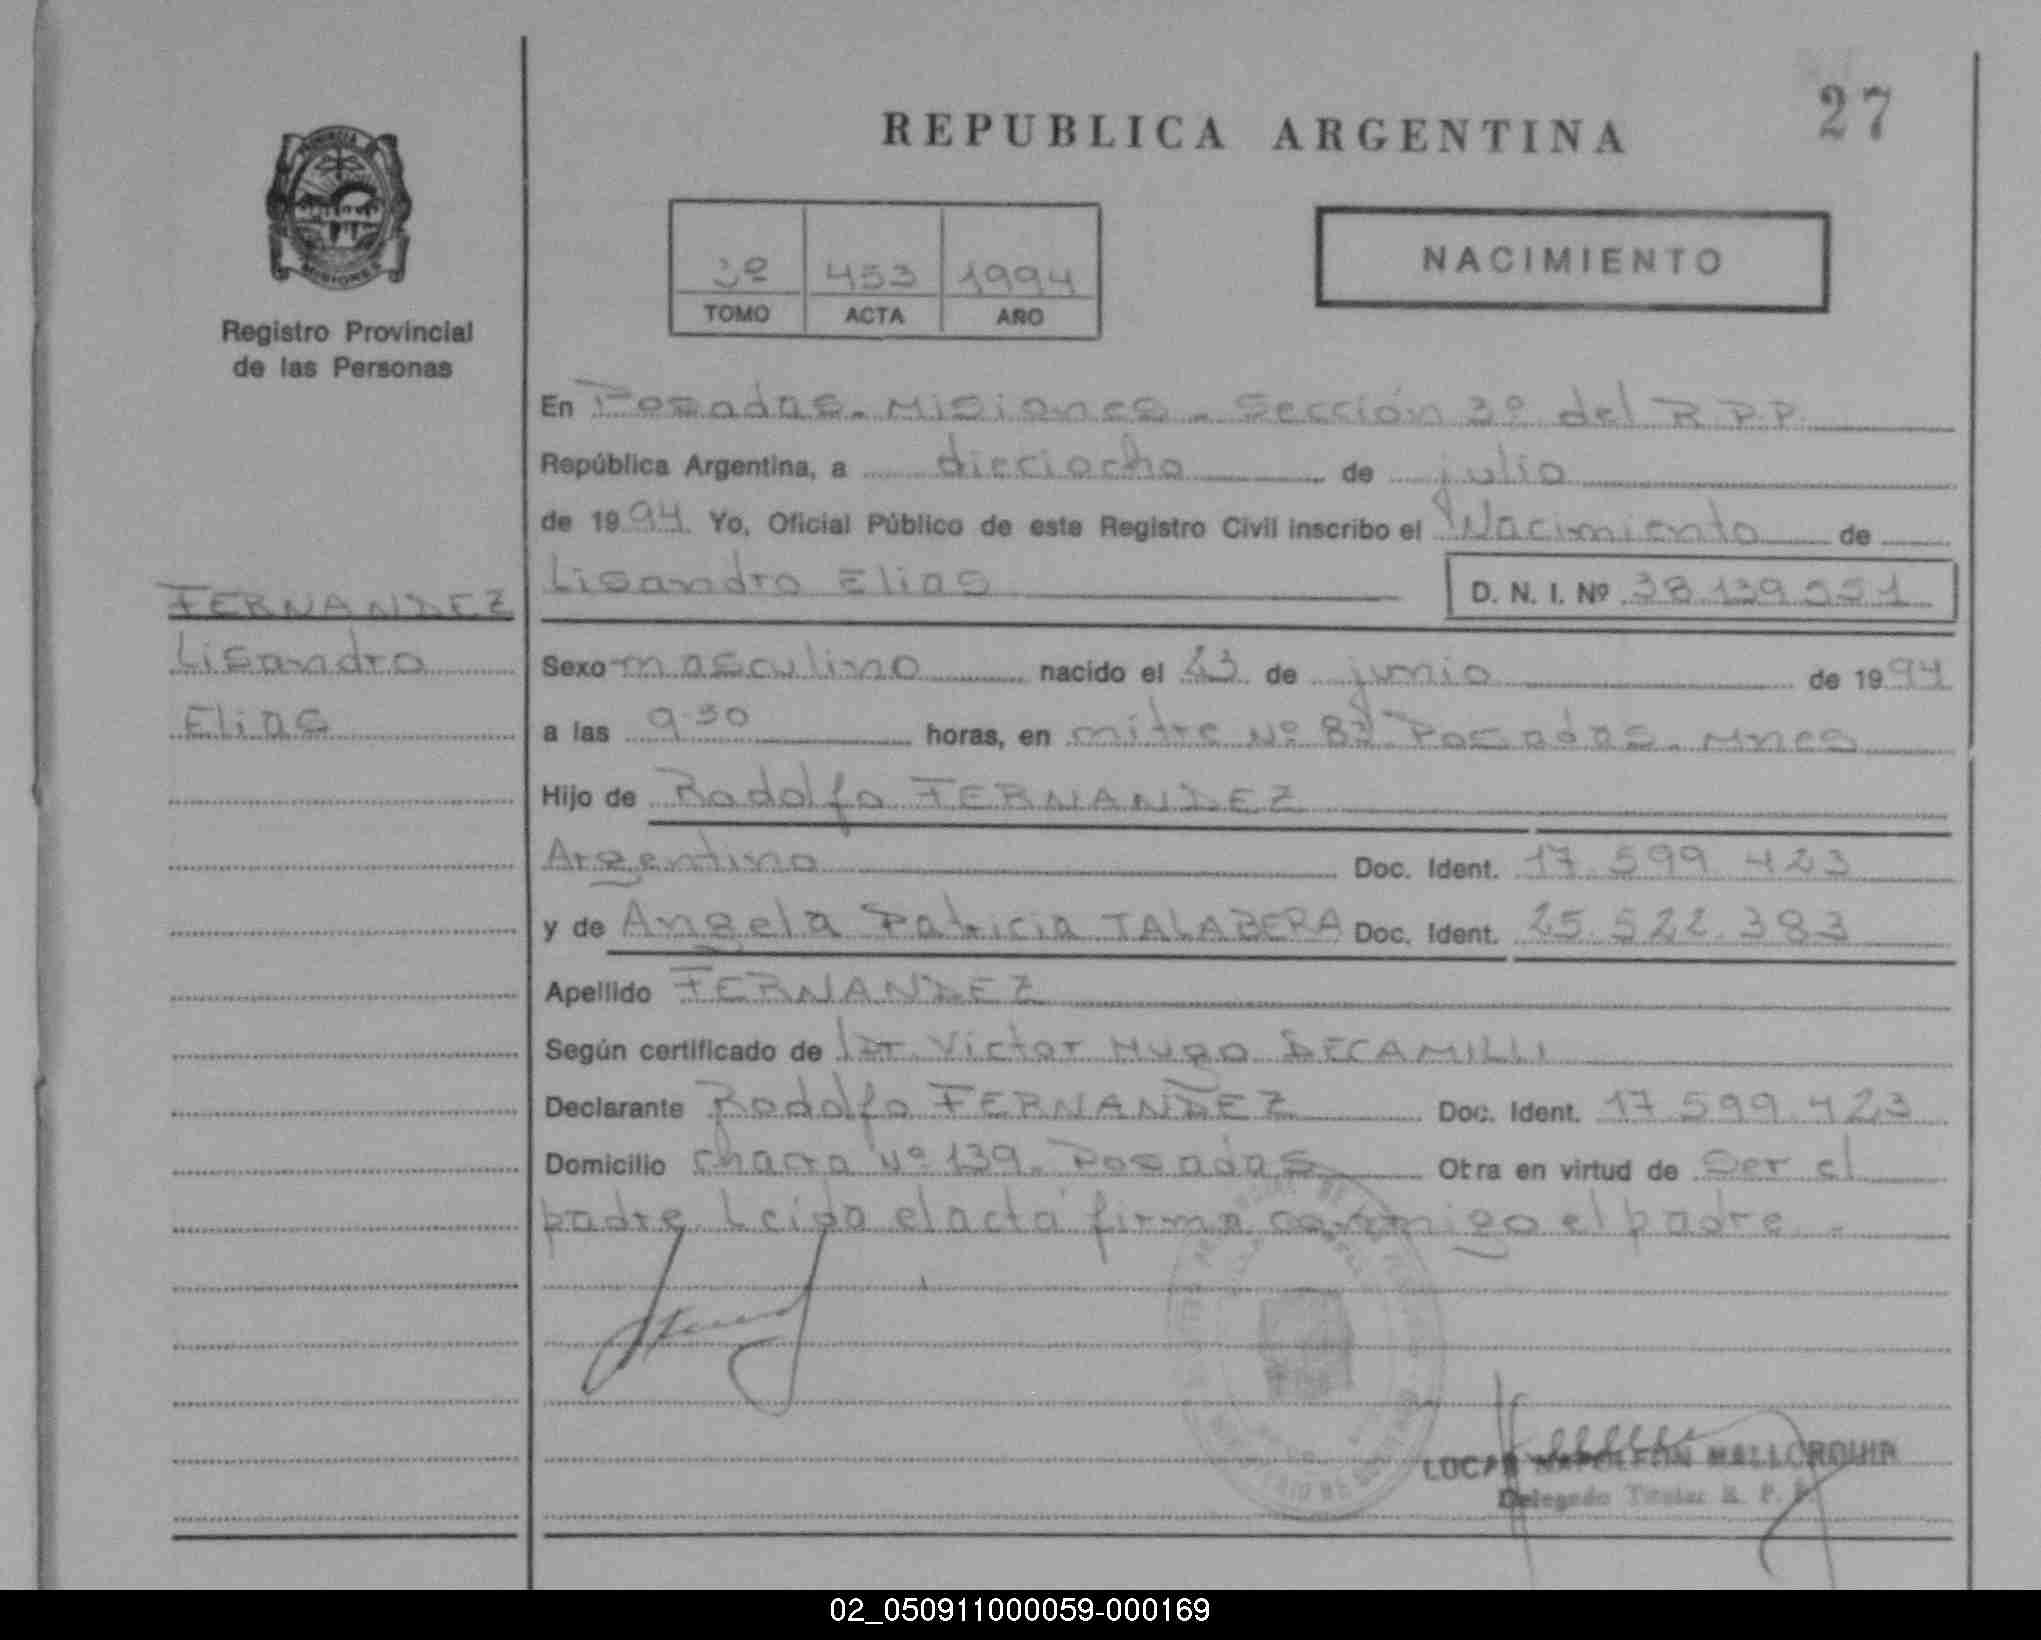 27
REPUBLICA ARGENTINA
NACIMIENTO
3º 453 1994
TOMO ACTA AÑO
MISIONES
Registro Provincial
de las Personas
En Posadas. Misiones. Sección 3º del R.P.P.
República Argentina, a dieciocho de julio
de 1994 Yo, Oficial Público de este Registro Civil inscribo el Nacimiento de
Lisandro Elias D. N. I. Nº 38.139.551
FERNANDEZ
Lisandro
Elias
Sexo masculino nacido el 23 de junio de 1994
a las 9.30 horas, en mitre Nº Posadas. Mnes
Hijo de Rodolfo FERNANDEZ
Argentino Doc. Ident. 17.599.423
y de Angela Patricia TALABERA Doc. Ident. 25.522.383
Apellido FERNANDEZ
Según certificado de Dr. Victor Hugo DECAMILLI
Declarante Rodolfo FERNANDEZ Doc. Ident. 17.599.423
Domicilio chacra Nº 139. Posadas Otra en virtud de ser el
padre. Leida el acta firma conmigo el padre.-
LUCAS NAPOLEON MALLORQUIN
Delegado Titular R. P. P.
02_050911000059-000169